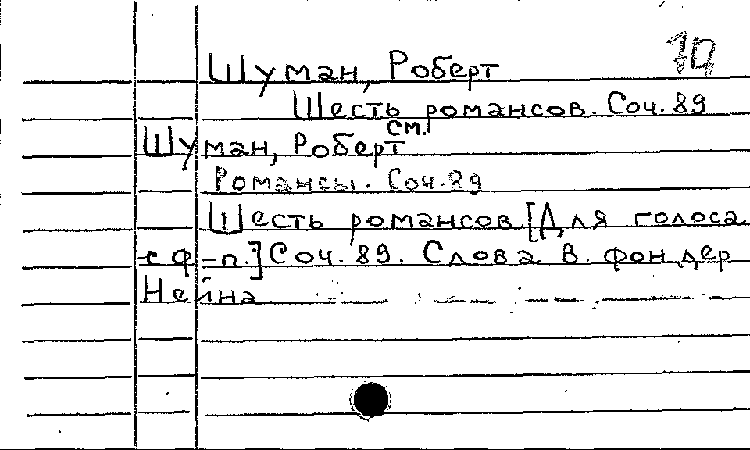 Шуман, Роберт
Шесть романсов. Соч. 89
см.
Шуман, Роберт
Романсы. Соч. 89
Шесть романсов [Для голоса
с ф-п.] Соч. 89. Слова В. фон дер
Нейна